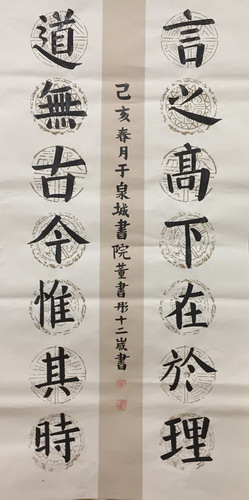 言之高下在於理
道無古今惟其時
己亥春月于泉城書院董書彤十二歲書